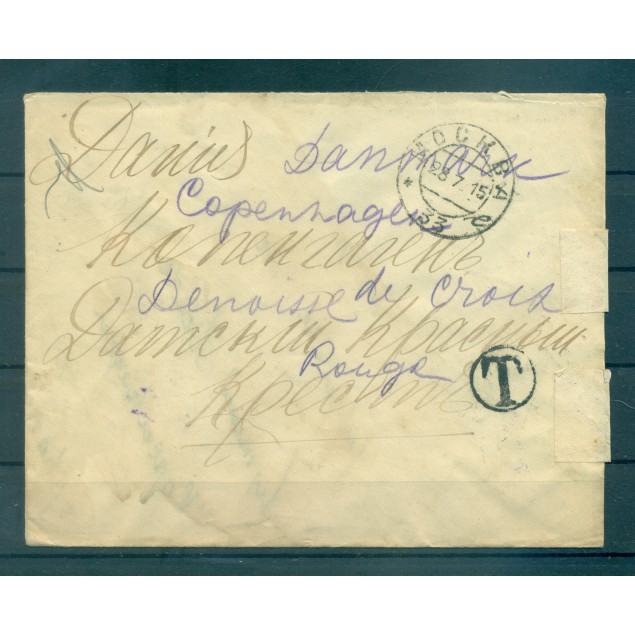 Данія Danmark
Copenhagen
Копенгагенъ
Denoisse de Croix
Датскій Красный
Rouge
Крестъ
МОСКВА
28 7 15
33 е
T